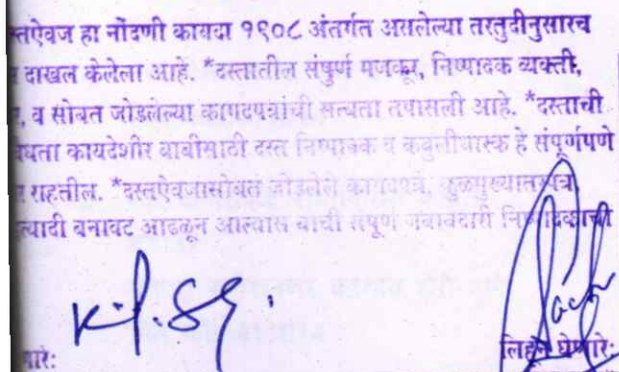 स्तऐवज हा नोंदणी कायदा १९०८ अंतर्गत असलेल्या तरतुदीनुसारच
दाखल केलेला आहे. *दस्तातील संपुर्ण मजकूर, निष्पादक व्यक्ती,
, व सोबत जोडलेल्या कागदपत्रांची सत्यता तपासली आहे. *दस्ताची
कायदेशीर बाबीसाठी दस्त निष्पादक व कबुलीधारक हे संपूर्णपणे
राहतील. *दस्तऐवजासोबत जोडलेले कागदपत्रे, कुळमुखत्यारपत्र
त्यादी बनावट आढळून आल्यास याची संपूर्ण जबाबदारी निष्पादकाची
लिहून घेणारे:
णारे: